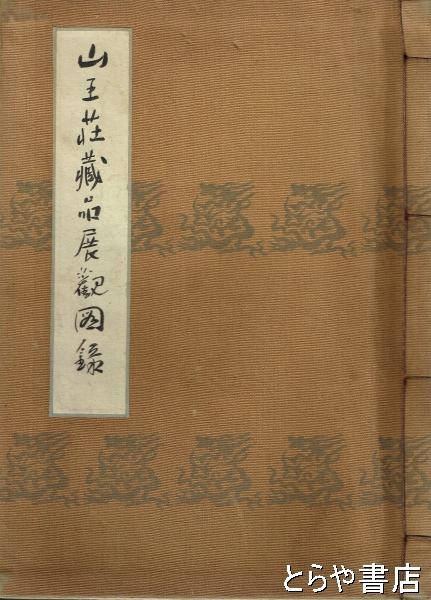 山王荘藏品展觀図録
とらや書店